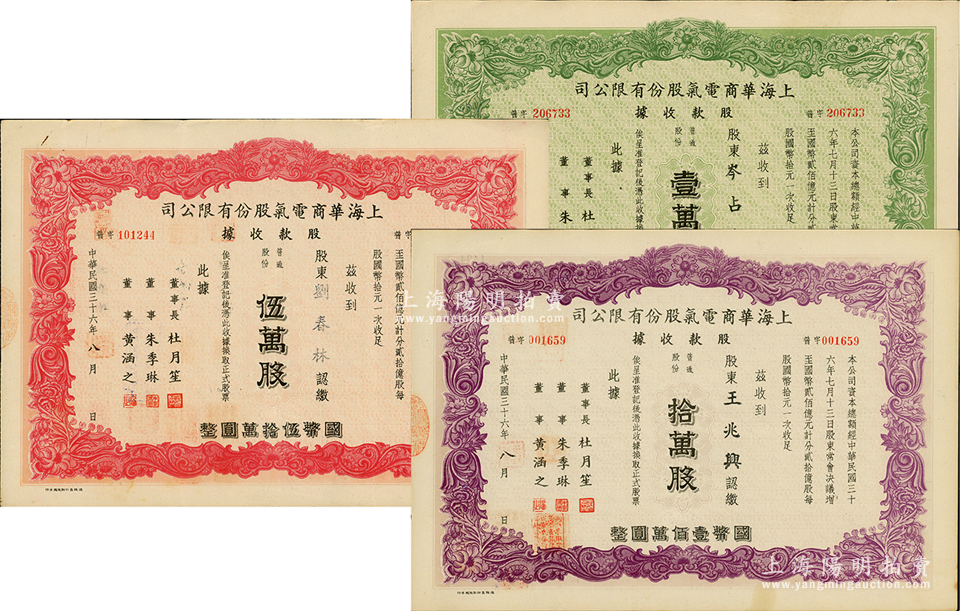 司公限有份股氣電商華海上
據收款股
普字 206733
普字 206733
本公司資本總額經中華
六年七月十三日股東常
至國幣貳佰億元計分貳
股國幣拾元一次收足
茲收到
股東岑占
普通股份
壹萬
俟呈准登記後憑此收據換
此據
董事長 杜
董事 朱
司公限有份股氣電商華海上
據收款股
普字 101244
普字
至國幣貳佰億元計分貳拾億股每
股國幣拾元一次收足
茲收到
股東劉春林認繳
普通股份
伍萬股
俟呈准登記後憑此收據換取正式股票
此據
董事長 杜月笙
董事 朱季琳
董事 黃涵之
中華民國三十六年八月 日
整圓萬拾伍幣國
司公限有份股氣電商華海上
據收款股
普字 001659
普字 001659
本公司資本總額經中華民國三十
六年七月十三日股東常會决議增
至國幣貳佰億元計分貳拾億股每
股國幣拾元一次收足
茲收到
股東王兆興認繳
普通股份
拾萬股
俟呈准登記後憑此收據換取正式股票
此據
董事長 杜月笙
董事 朱季琳
董事 黃涵之
中華民國三十六年八月 日
整圓萬佰壹幣國
上海陽明拍賣
www.yangmingauction.com
上海陽明拍賣
www.yangmingauction.com